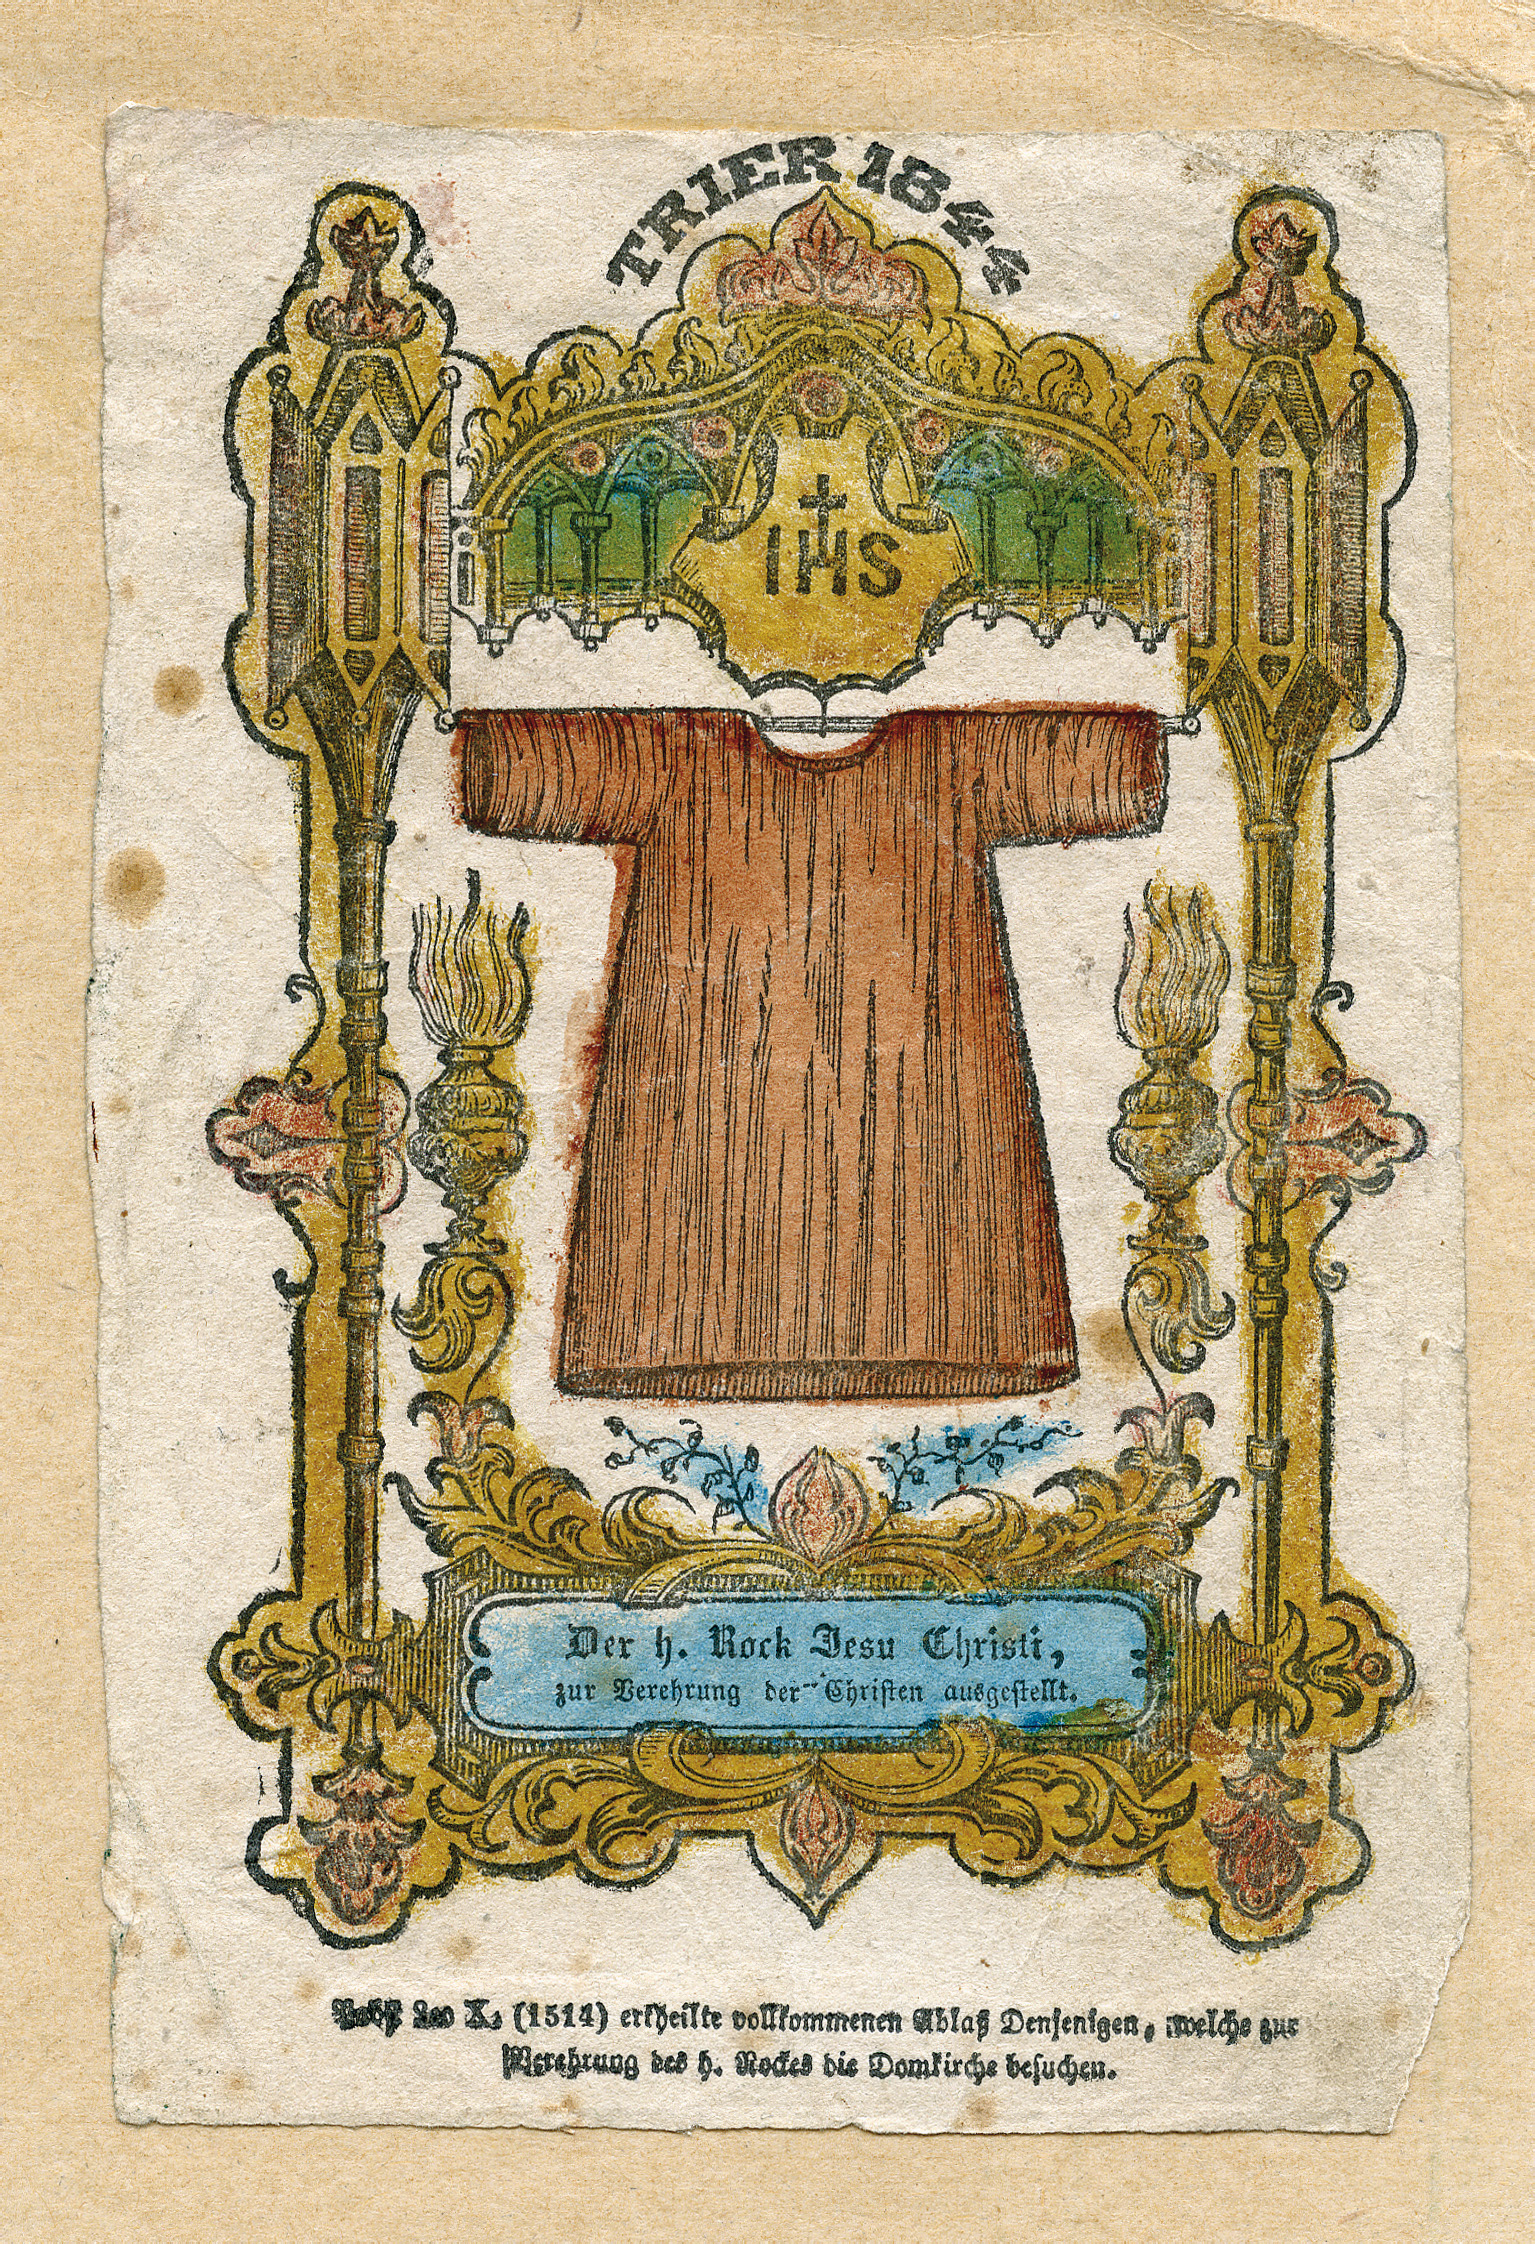 TRIER 1844
IHS
Der h. Rock Jesu Christi,
zur Verehrung der Christen ausgestellt.
Pabst Leo X. (1514) ertheilte vollkommenen Ablaß Denjenigen, welche zur
Verehrung des h. Rockes die Domkirche besuchen.